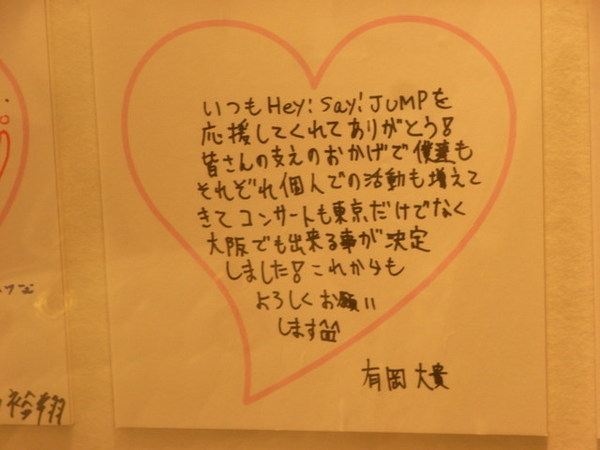 いつもHey! Say! JUMPを
応援してくれてありがとう!
皆さんの支えのおかげで僕達も
それぞれ個人での活動も増えて
きてコンサートも東京だけでなく
大阪でも出来る事が決定
しました!これからも
よろしくお願い
します^^
有岡大貴
裕翔